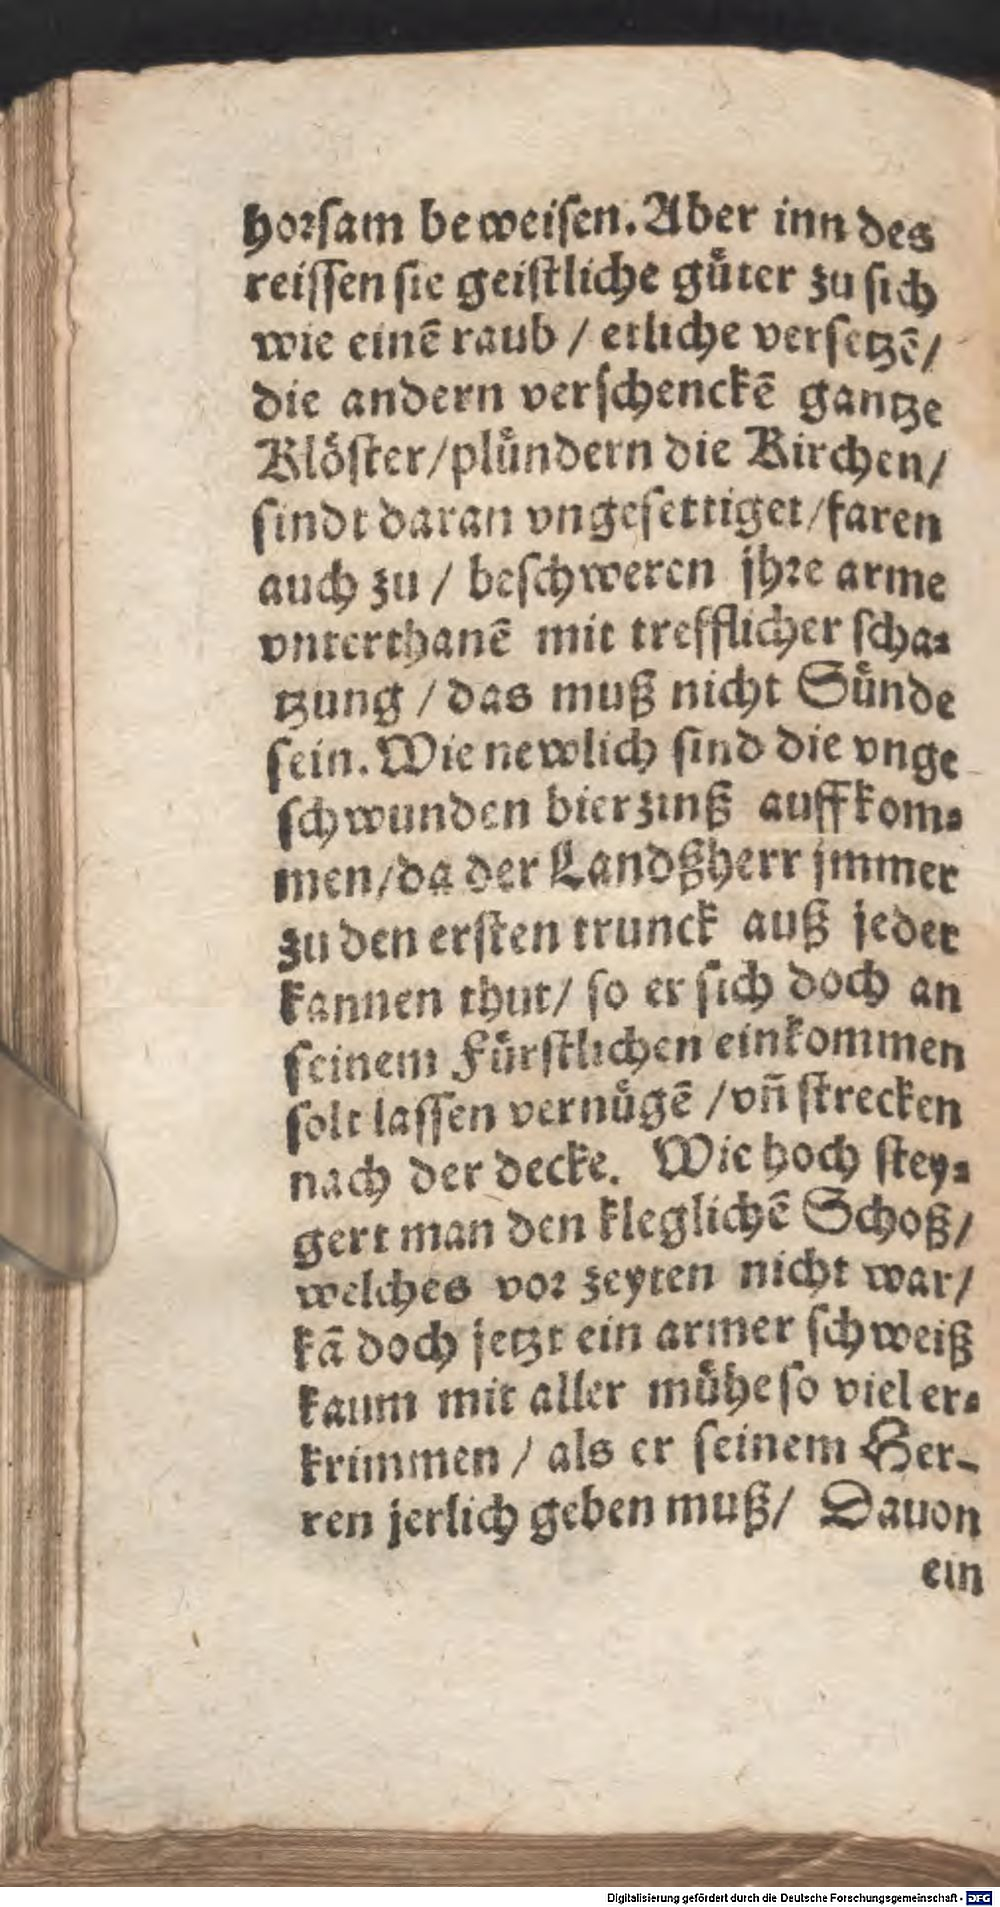 horſam beweiſen. Aber inn des
reiſſen ſie geiſtliche guͤter zu ſich
wie einē raub / etliche verſetzē /
die andern verſchenckē gantze
Kloͤſter / pluͤndern die Kirchen /
ſindt daran vngeſettiget / faren
auch zu / beſchweren jhꝛe arme
vnterthanē mit trefflicher ſcha⸗
tzung / das muß nicht Suͤnde
ſein. Wie newlich ſind die vnge
ſchwunden bierzinß auffkom⸗
men / da der Landßherr jmmer
zu den erſten trunck auß jeder
kannen thut / ſo er ſich doch an
ſeinem Fuͤrſtlichen einkommen
ſolt laſſen vernuͤgē / vn̄ ſtrecken
nach der decke. Wie hoch ſtey⸗
gert man den kleglichē Schoß /
welches voꝛ zeyten nicht war /
kā doch jetzt ein armer ſchweiß
kaum mit aller muͤhe ſo viel er⸗
krimmen / als er ſeinem Her⸗
ren jerlich geben muß / Dauon
ein
Digitalisierung gefördert durch die Deutsche Forschungsgemeinschaft - DFG